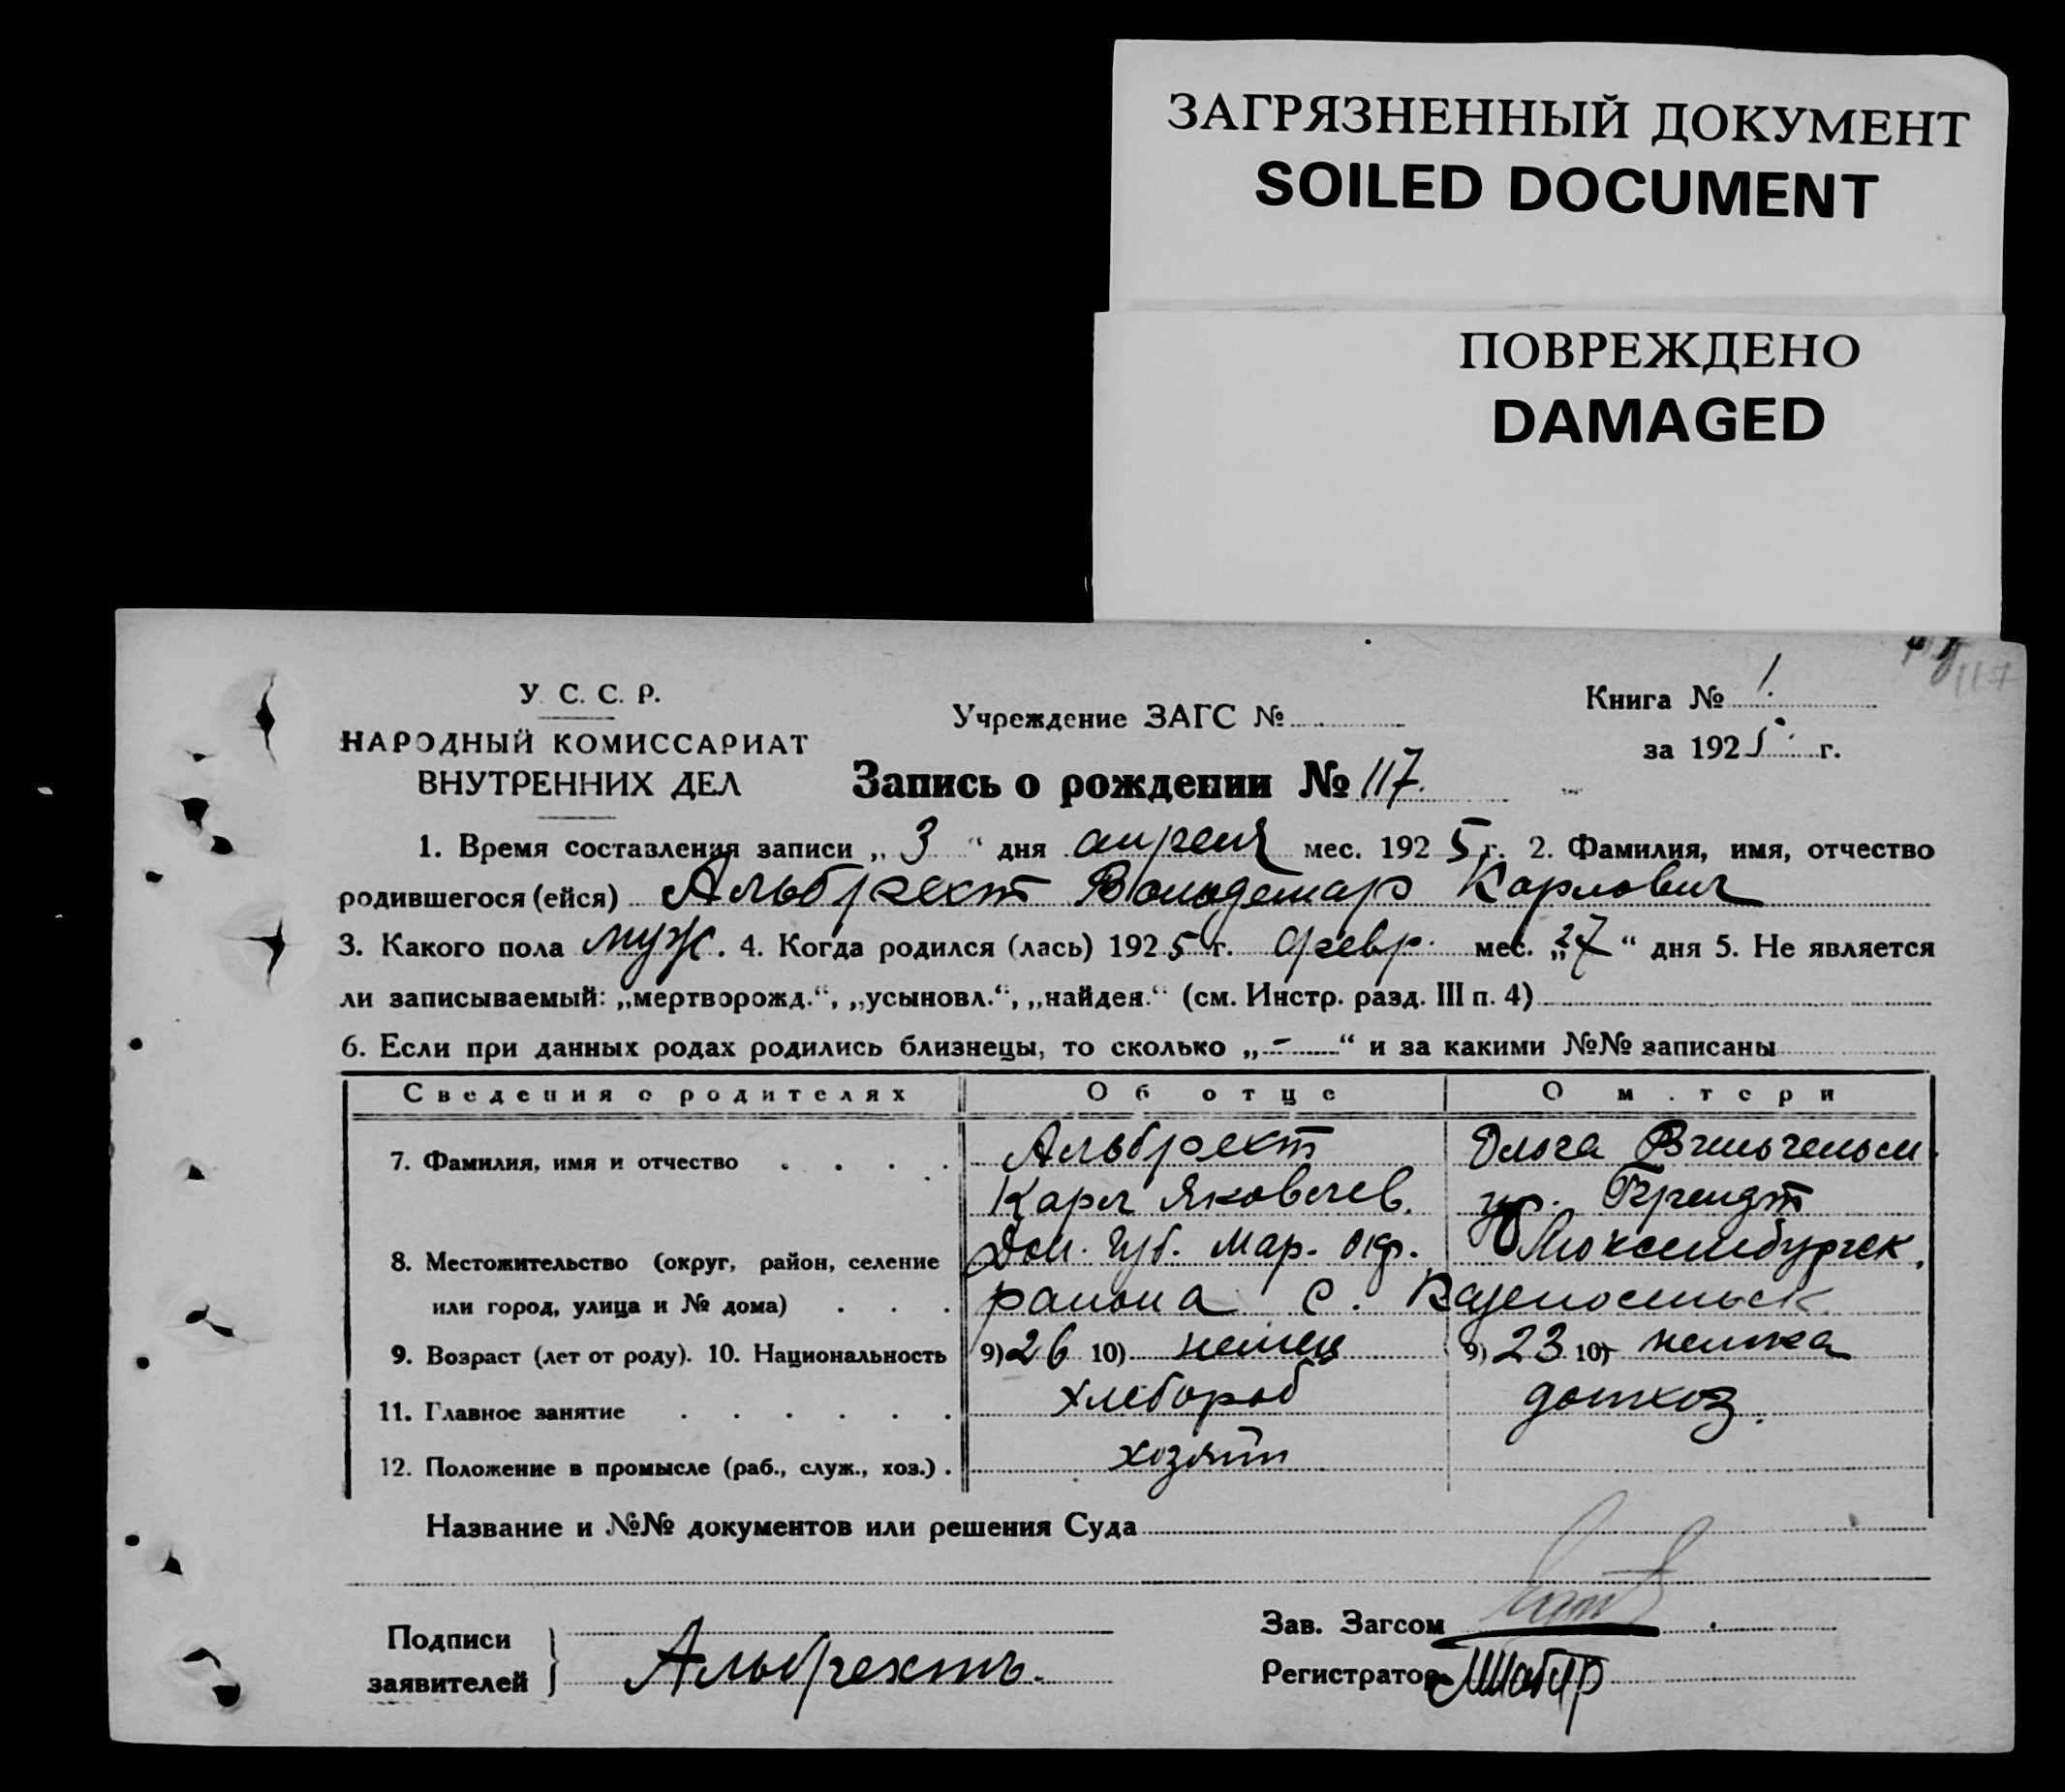 ЗАГРЯЗНЕННЫЙ ДОКУМЕНТ
SOILED DOCUMENT
ПОВРЕЖДЕНО
DAMAGED
117
У. С. С. Р.
НАРОДНЫЙ КОМИССАРИАТ
ВНУТРЕННИХ ДЕЛ
Учреждение ЗАГС №
Книга № 1.
за 1925 г.
Запись о рождении № 117.
1. Время составления записи „ 3 “ дня апреля мес. 1925 г. 2. Фамилия, имя, отчество
родившегося (ейся) Альбрехт Вольдемар Карлович
3. Какого пола муж. 4. Когда родился (лась) 1925 г. февр. мес. „27“ дня 5. Не является
ли записываемый: „мертворожд.“, „усыновл.“, „найден.“ (см. Инстр. разд. III п. 4)
6. Если при данных родах родились близнецы, то сколько „-“ и за какими №№ записаны
Сведения о родителях Об отце О м.тери
7. Фамилия, имя и отчество Альбрехт Ольга Вильгельм.
Карл Яковлев. ур. Брандт
8. Местожительство (округ, район, селение Дон. губ. Мар. окр. Люксембургск.
или город, улица и № дома) района с.
9. Возраст (лет от роду). 10. Национальность 9) 26 10) немец 9) 23 10) немка
11. Главное занятие хлебороб домхоз.
12. Положение в промысле (раб., служ., хоз.) хозяин
Название и №№ документов или решения Суда
Подписи
заявителей
Альбрехтъ.
Зав. Загсом
Регистратор